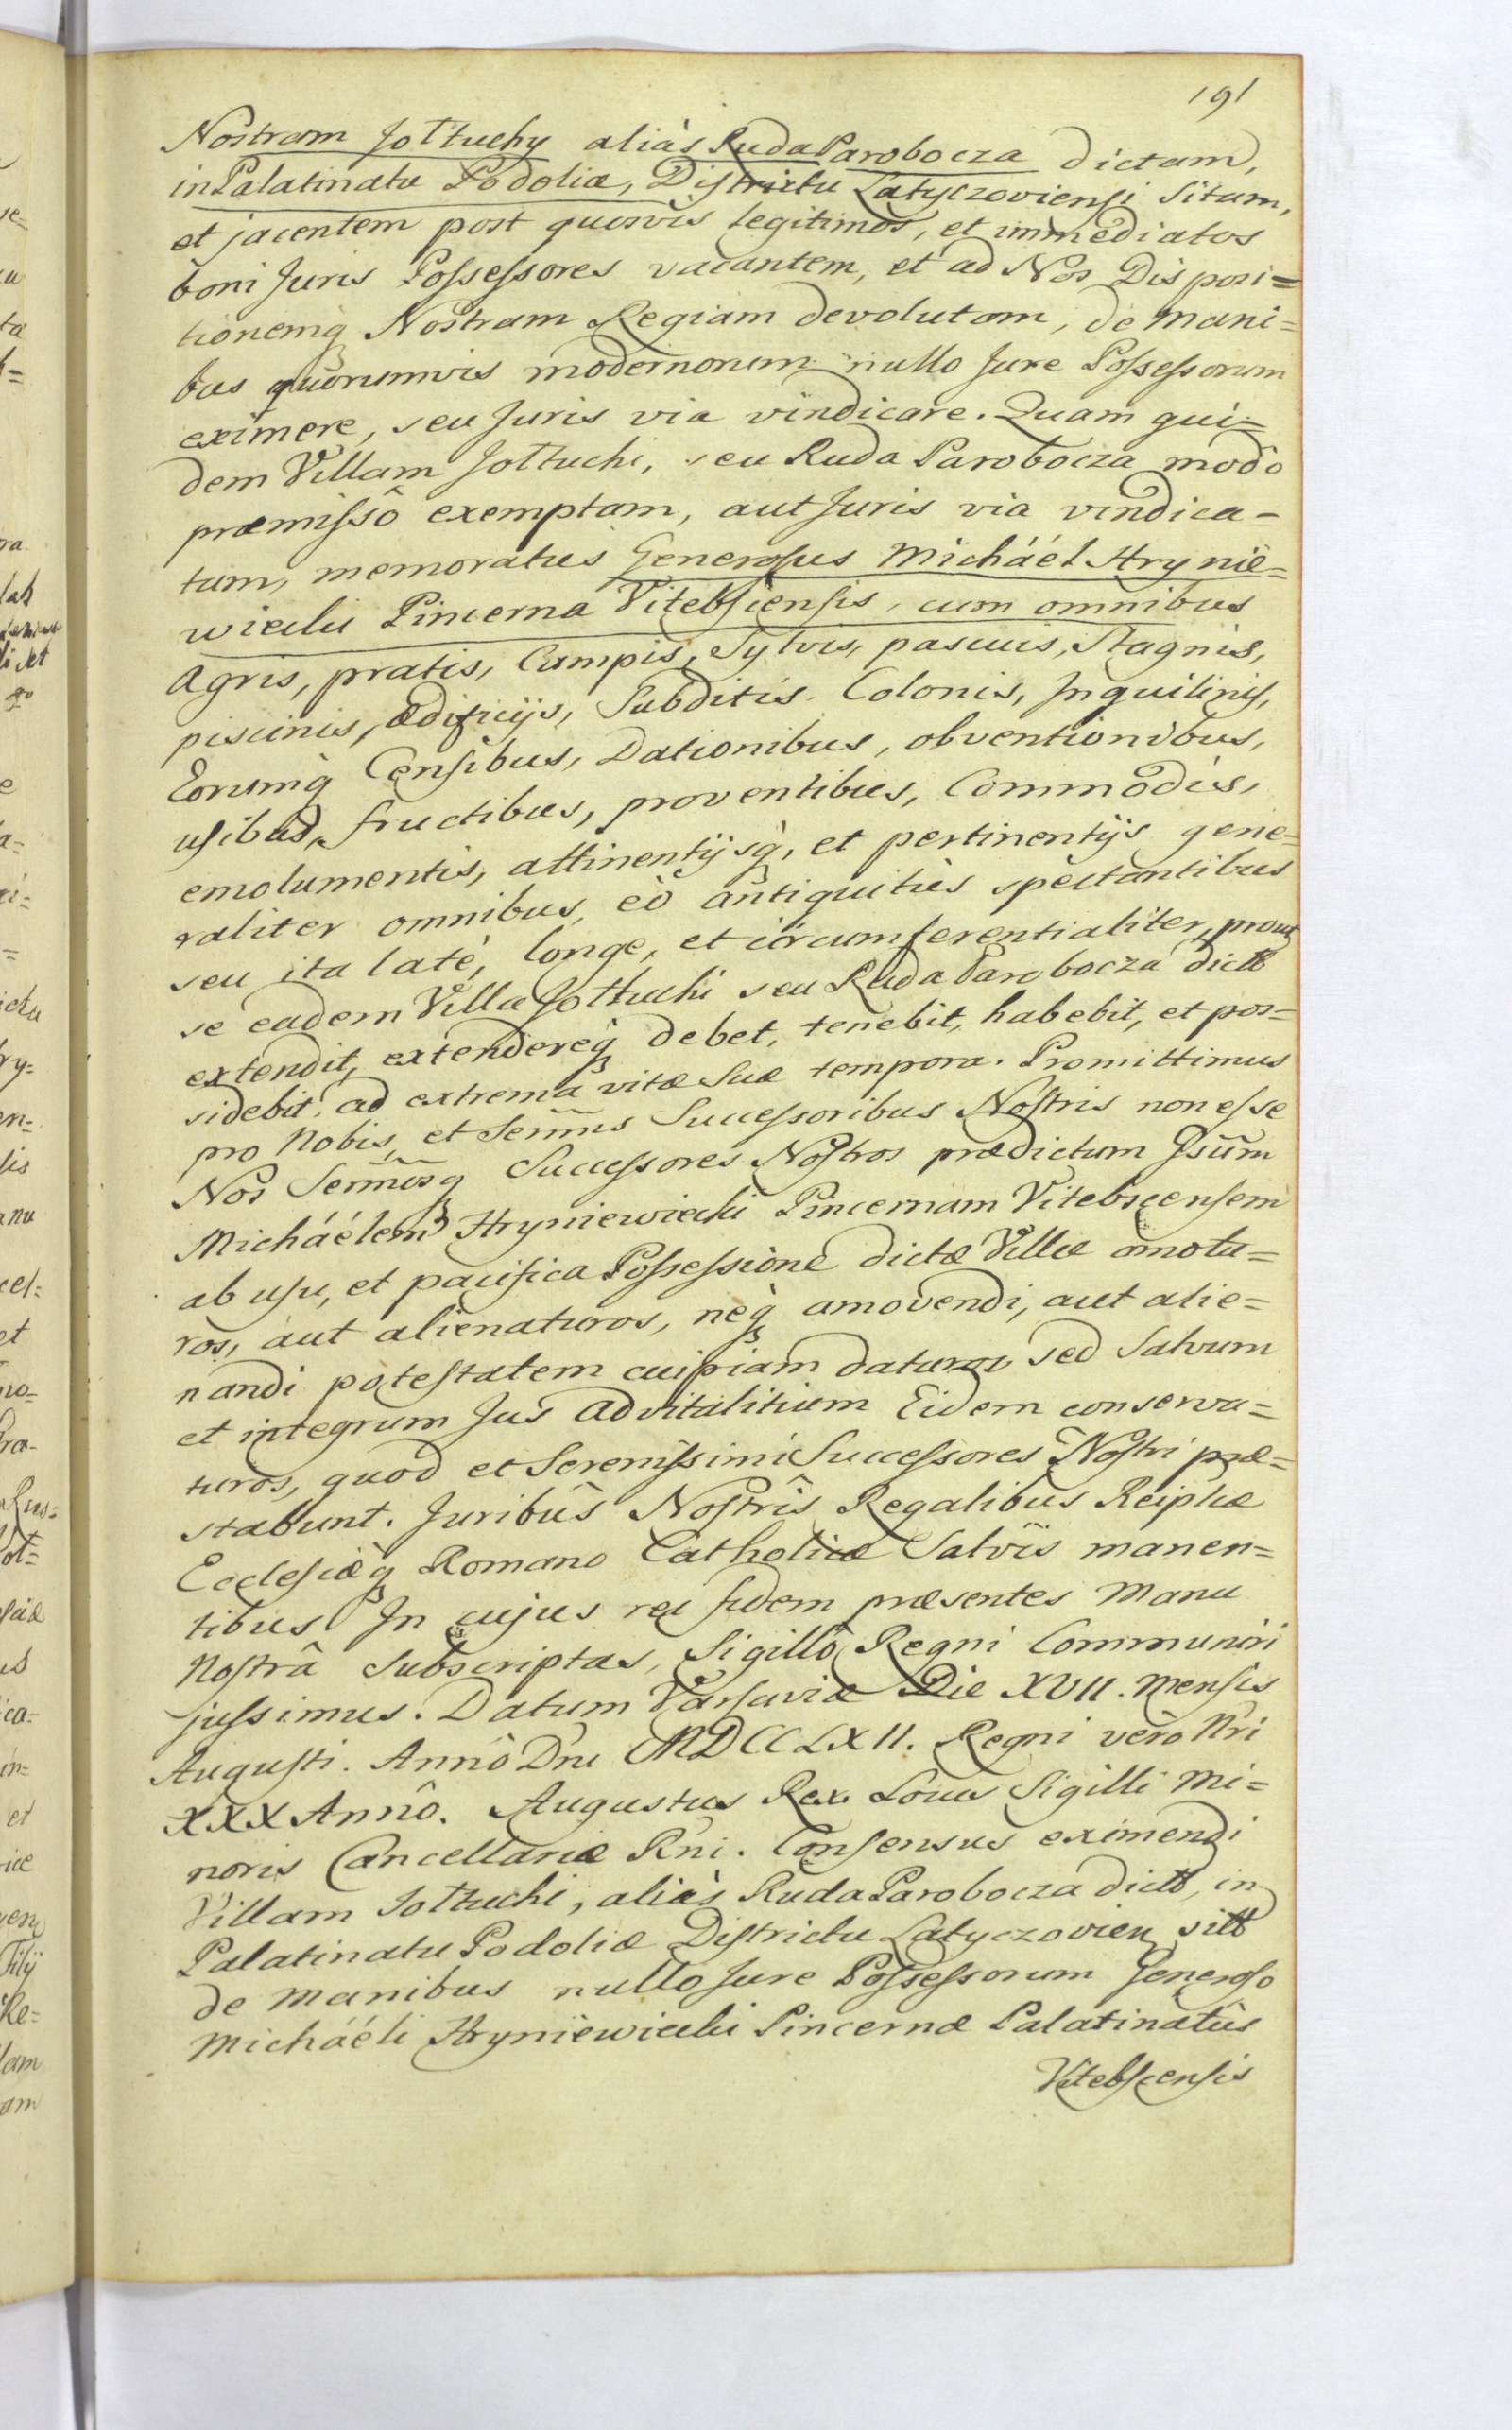 191
Nostram Jołtuchy aliàs Ruda Parobocza dictam,
in Palatinatu Podoliæ, Districtu Latyczoviensi Sitam,
et jacentem post quosvis legitimos, et immediatos
boni Juris Possessores vacantem, et ad Nos Disposi=
tionemq Nostram Regiam devolutam, de mani=
bus quorumvis modernorum nullo Jure Possessorum
eximere, seu Juris via vindicare. Quam qui=
dem Villam Jołtuchi, seu Ruda Parobocza modo
præmissô exemptam, aut Juris via vindica=
tam, memoratus Generosus Micháél Hrynie=
wiecki Pincerna Vitebscensis, cum omnibus
Agris, pratis, Campis, Sylvis, pascuis, Stagnis,
piscinis, ædificijs, Subditis. Colonis, Inquilinis,
Eorumq Censibus, Dationibus, obventionibus,
usibus, fructibus, proventibus, Commodis,
emolumentis, attinentijsq, et pertinentijs gene=
raliter omnibus, eò antiquitùs spectantibus
seu ita latè, longe, et circumferentialiter, prout
se eadem Villa Jołtuchi seu Ruda Parobocza dicta
extendit, extendereq debet, tenebit, habebit, et pos=
sidebit, ad extrema vitæ Suæ tempora. Promittimus
pro Nobis, et Sermis Successoribus Nostris non esse
Nos Sermosq Successores Nostros prædictum Gsum
Micháélem Hryniewiecki Pincernam Vitebscensem
ab usu, et pacifica Possessione dictæ Villæ amotu=
ros, aut alienaturos, neq amovendi, aut alie=
nandi potestatem cuipiam daturos sed Salvum
et integrum Jus advitalitium Eidem conserva=
turos, quod et Serenissimi Successores Nostri præ=
stabunt. Juribus Nostris Regalibus Reiplicæ
Ecclesiæq Romano Catholicæ Salvis manen=
tibus In cujus rei fidem præsentes Manu
Nostrâ Subscriptas, Sigillô Regni Communiri
jussimus. Datum Varsaviæ Die XVII. Mensis
Augusti. Annô Dni MDCCLXII. Regni vero Nri
XXX Annô. Augustus Rex. Locus Sigilli Mi=
noris Cancellariæ Rni. Consensus eximendi
Villam Jołtuchi, aliàs Ruda Parobocza dictā, in
Palatinatu Podoliæ Districtu Latyczovien sitā
de manibus nullo Jure Possessorum Generoso
Micháéli Hryniewiecki Pincernæ Palatinatûs
Vitebscensis